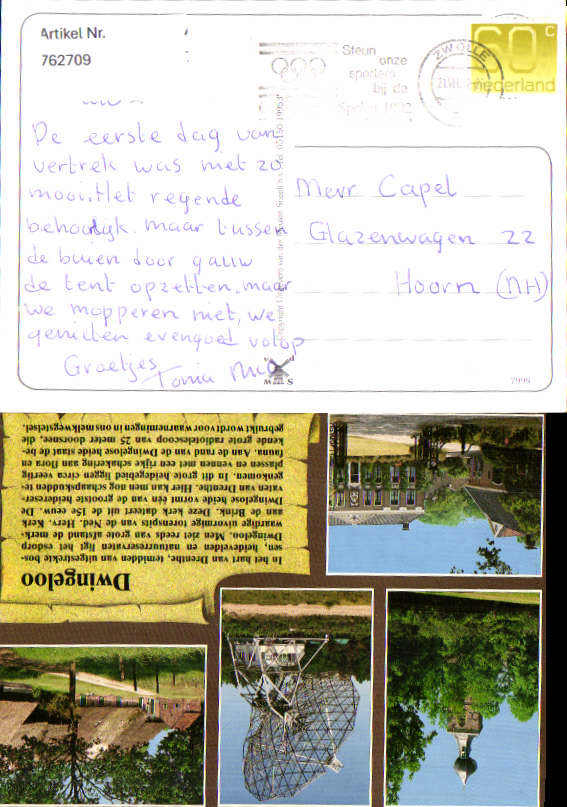 Artikel Nr.
762709
Steun
onze
sporters
bij de
Spelen 1992
ZWOLLE
60 c
nederland
De eerste dag van
vertrek was niet zo
mooi. Het regende
behoorlijk maar tussen
de buien door gauw
de tent opzetten. maar
we mopperen niet, we
genieten evengoed volop
Groetjes
Tonia
Mevr Capel
Glazenwagen 22
Hoorn (NH)
7996
Dwingeloo
In het hart van Drenthe, temidden van uitgestrekte bos-
sen, heidevelden en natuurreservaten ligt het esdorp
Dwingeloo. Men ziet reeds van grote afstand de merk-
waardige uivormige torenspits van de Ned. Herv. Kerk
aan de Brink. Deze kerk dateert uit de 15e eeuw. De
Dwingelose heide vormt één van de grootste heidereser-
vaten van Drenthe. Hier kan men nog schaapskudden te-
genkomen. In dit grote heidegebied liggen circa veertig
plassen en vennen met een rijke schakering aan flora en
fauna. Aan de rand van de Dwingelose heide staat de be-
kende grote radiotelescoop van 25 meter doorsnee, die
gebruikt wordt voor waarnemingen in ons melkwegstelsel.